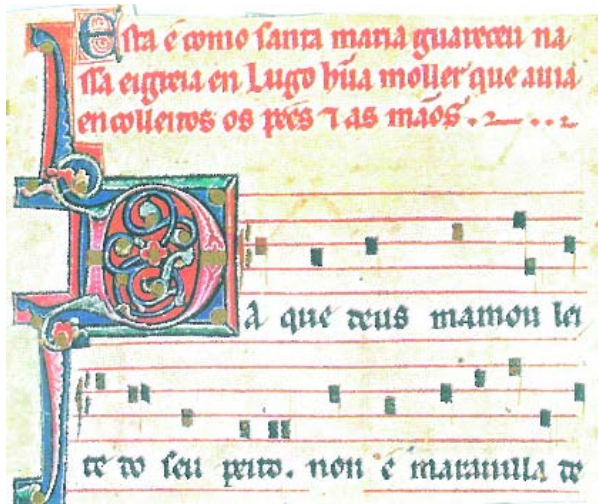 Esta é como santa maria guareceu na
ssa eigreia en Lugo hũa moller que auia
encolleitos os pées ⁊ as mãos.
A que deus mamou lei
te do seu peito. non é marauilla de